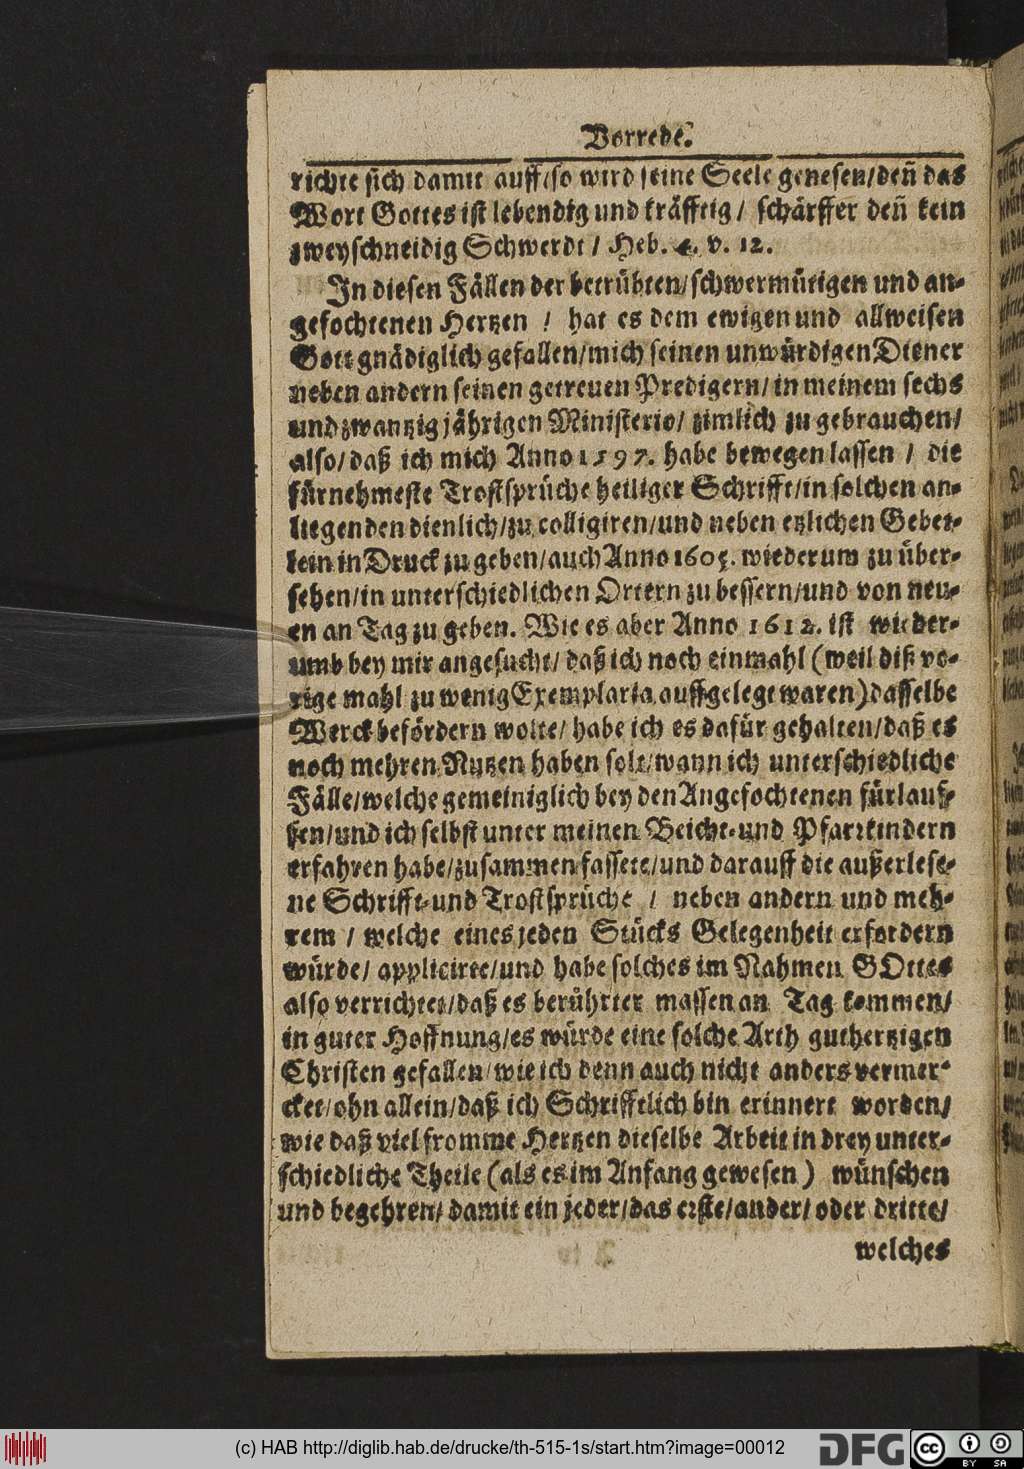 Vorrede.
richte sich damit auff/so wird seine Seele genesen/deñ das
Wort Gottes ist lebendig und kräfftig / schärffer deñ kein
zweyschneidig Schwerdt / Heb. 4. v. 12.
In diesen Fällen der betrübten/schwermütigen und an-
gefochtenen Hertzen / hat es dem ewigen und allweisen
Gott gnädiglich gefallen/mich seinen unwürdigen Diener
neben andern seinen getreuen Predigern/in meinem sechs
und zwantzig jährigen Ministerio/ zimlich zu gebrauchen/
also/daß ich mich Anno 1597. habe bewegen lassen / die
fürnehmeste Trostsprüche heiliger Schrifft/in solchen an-
liegenden dienlich/zu colligiren/und neben etzlichen Gebet-
lein in Druck zu geben/auch Anno 1605. wiederum zu über-
sehen/in unterschiedlichen Ortern zu bessern/und von neu-
en an Tag zu geben. Wie es aber Anno 1612. ist wieder-
umb bey mir angesucht/ daß ich noch einmahl (weil diß vo-
rige mahl zu wenig Exemplaria auffgelegt waren) dasselbe
Werck befördern wolte/ habe ich es dafür gehalten/daß es
noch mehren Nutzen haben solt/wann ich unterschiedliche
Fälle/welche gemeiniglich bey den Angefochtenen fürlauf-
fen/und ich selbst unter meinen Beicht-und Pfarrkindern
erfahren habe/zusammen fassete/und darauff die außerlese-
ne Schrifft-und Trostsprüche / neben andern und meh-
rem / welche eines jeden Stücks Gelegenheit erfordern
würde/ applicirte/und habe solches im Nahmen GOttes
also verrichtet/daß es berührter massen an Tag kommen/
in guter Hoffnung/es würde eine solche Arth guthertzigen
Christen gefallen/wie ich denn auch nicht anders vermer-
cket/ohn allein/daß ich Schrifftlich bin erinnert worden/
wie daß viel fromme Hertzen dieselbe Arbeit in drey unter-
schiedliche Theile (als es im Anfang gewesen) wünschen
und begehren/ damit ein jeder/das erste/ander/oder dritte/
welches
(c) HAB http://diglib.hab.de/drucke/th-515-1s/start.htm?image=00012
DFG
cc BY SA